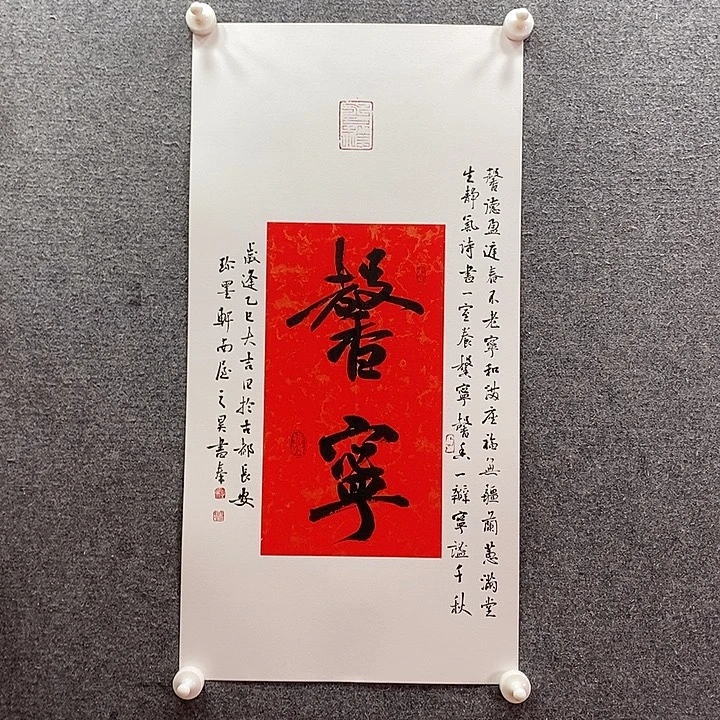 馨德盈庭春不老寧和滿座福無疆蘭蕙滿堂
生靜氣詩書一室養馨寧馨香一瓣寧謐千秋
馨寧
歲逢乙巳大吉日於古都長安
珍墨軒南屋之昊書奉